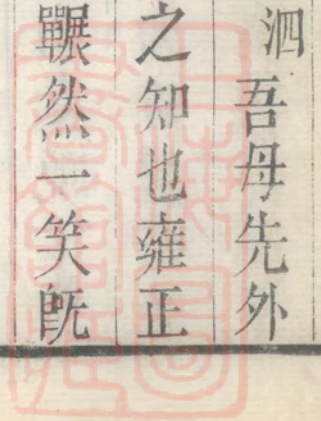 泗吾母先外
之知也雍正
囅然一笑旣